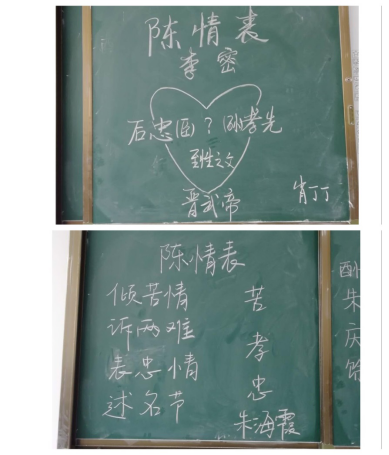 陈情表
李密
后忠臣？ 孝先
至性之文
晋武帝
肖丁丁
陈情表
倾苦情 苦
诉两难
表忠情 孝
述名节 忠
朱海霞
酬
朱
庆
馀